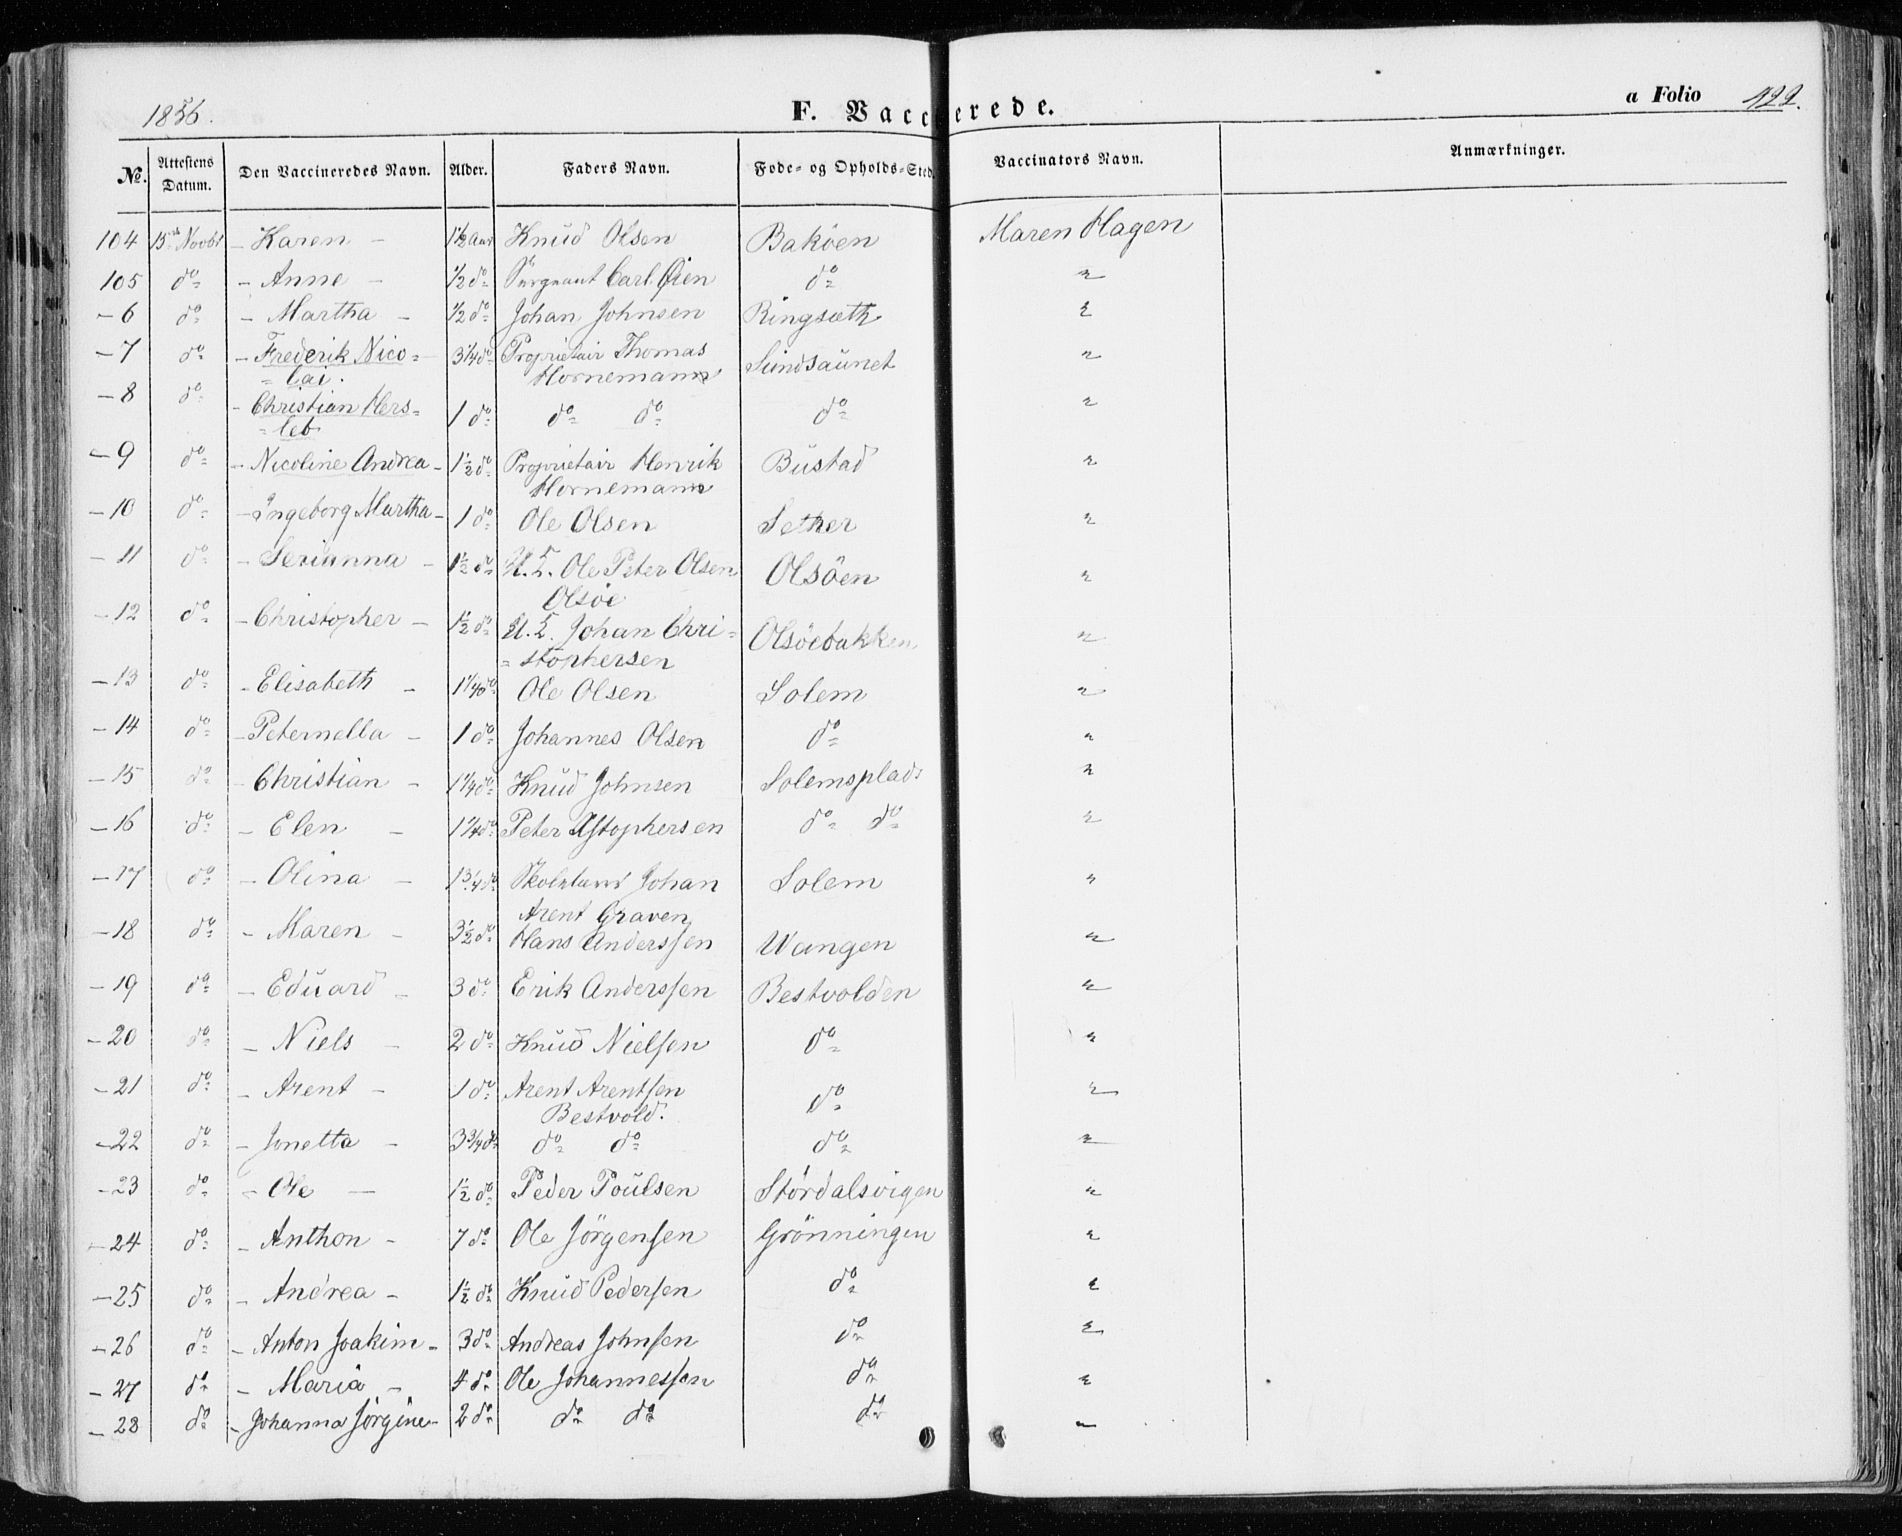 1856.
F. Vaccinerede.
a Folio 122.
№. Attestens Datum. Den Vaccineredes Navn. Alder. Faders Navn. Føde- og Opholds-Sted. Vaccinators Navn. Anmærkninger.
104 15de Novbr - Karen - 1½ Aar Knud Olsen Baköen Maren Hagen
105 do - Anne - ½ do Sergeant Carl Øien do "
- 6 do - Martha - ½ do Johan Johnsen Ringsæth "
- 7 do - Frederik Nico= 3¼ do Proprietair Thomas Sundsaunet "
= lai. Hornemann
- 8 do - Christian Hers= 1 do do do do "
= leb
- 9 do - Nicoline Andrea - 1½ do Proprietair Henrik Bustad "
Hornemann
- 10 do - Ingeborg Martha - 1 do Ole Olsen Sether "
- 11 do - Serianna - 1½ do U. L. Ole Peter Olsen Olsöen "
Olsöe
- 12 do - Christopher - 1½ do U. L. Johan Chri= Olsöebakken "
= stophersen
- 13 do - Elisabeth - 1¼ do Ole Olsen Solem "
- 14 do - Peternella - 1 do Johannes Olsen do "
- 15 do - Christian - 1¼ do Knud Johnsen Solemsplads "
- 16 do - Elen - 1¼ do Peter Xstophersen do do "
- 17 do - Olina - 1¾ do Skolelærer Johan Solem "
Arent Graven
- 18 do - Maren - 3½ do Hans Anderssen Wangen "
- 19 do - Eduard - 3 do Erik Anderssen Bestvolden "
- 20 do - Niels - 2 do Knud Nielsen do "
- 21 do - Arent - 1 do Arent Arentsen do "
Bestvold.
- 22 do - Jonetta - 3¾ do do do do "
- 23 do - Ole - 1½ do Peder Poulsen Stördalsvigen "
- 24 do - Anthon - 7 do Ole Jörgensen Grönningen "
- 25 do - Andrea - 1½ do Knud Pedersen do "
- 26 do - Anton Joakim - 3 do Andreas Johnsen do "
- 27 do - Maria - 4 do Ole Johannessen do "
- 28 do - Johanna Jörgine - 2 do do do do "